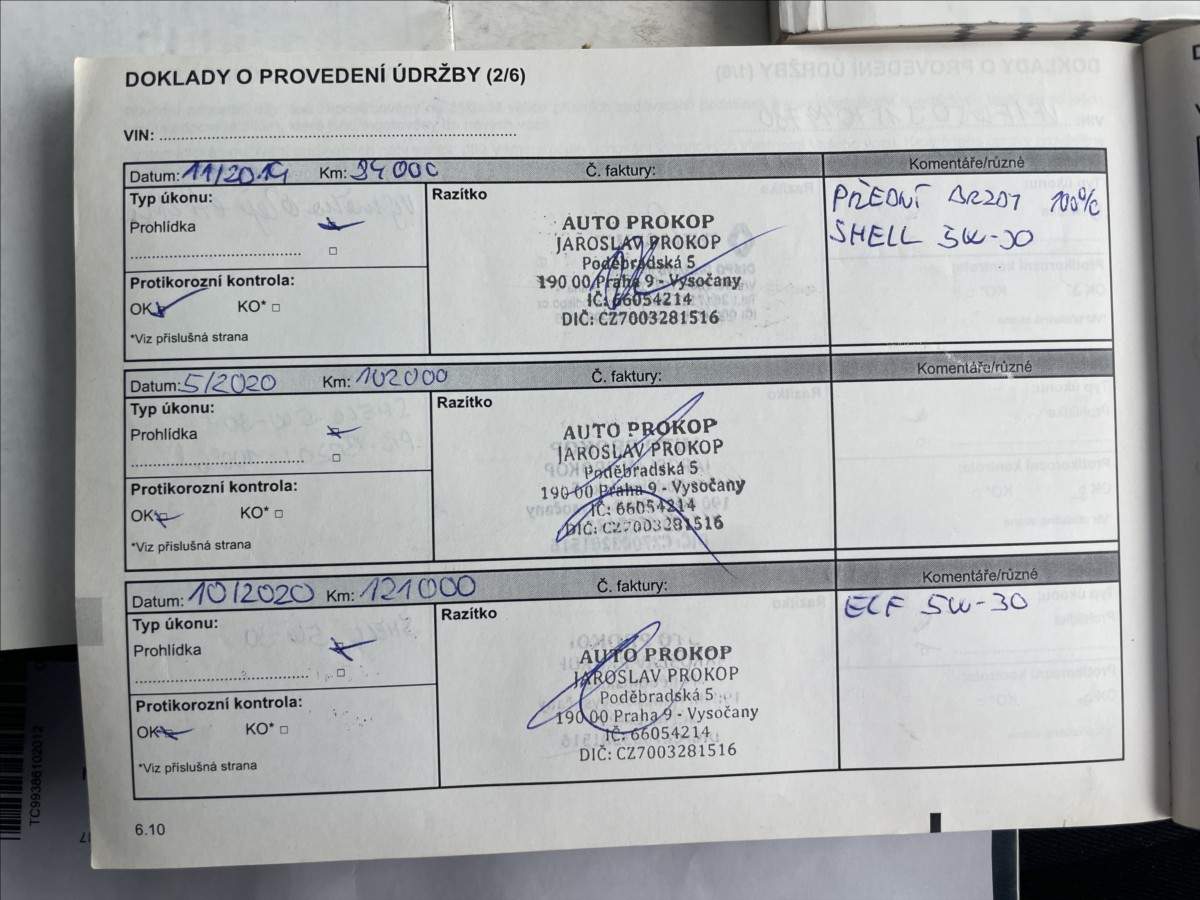 DOKLADY O PROVEDENÍ ÚDRŽBY (2/6)
VIN:
Datum: 11/2019 Km: 94000 Č. faktury: Komentáře/různé
Typ úkonu:
Prohlídka
Protikorozní kontrola:
OK KO* □
*Viz přislušná strana
Razítko
AUTO PROKOP
JAROSLAV PROKOP
Poděbradská 5
190 00 Praha 9 - Vysočany
IČ: 66054214
DIČ: CZ7003281516
PŘEDNÍ BRZDY 100%
SHELL 5W-30
Datum: 5/2020 Km: 102000 Č. faktury: Komentáře/různé
Typ úkonu:
Prohlídka
Protikorozní kontrola:
OK KO* □
*Viz přislušná strana
Razítko
AUTO PROKOP
JAROSLAV PROKOP
Poděbradská 5
190 00 Praha 9 - Vysočany
IČ: 66054214
DIČ: CZ7003281516
Datum: 10/2020 Km: 121000 Č. faktury: Komentáře/různé
Typ úkonu:
Prohlídka
Protikorozní kontrola:
OK KO* □
*Viz přislušná strana
Razítko
AUTO PROKOP
JAROSLAV PROKOP
Poděbradská 5
190 00 Praha 9 - Vysočany
IČ: 66054214
DIČ: CZ7003281516
ELF 5W-30
6.10
TC99386102012